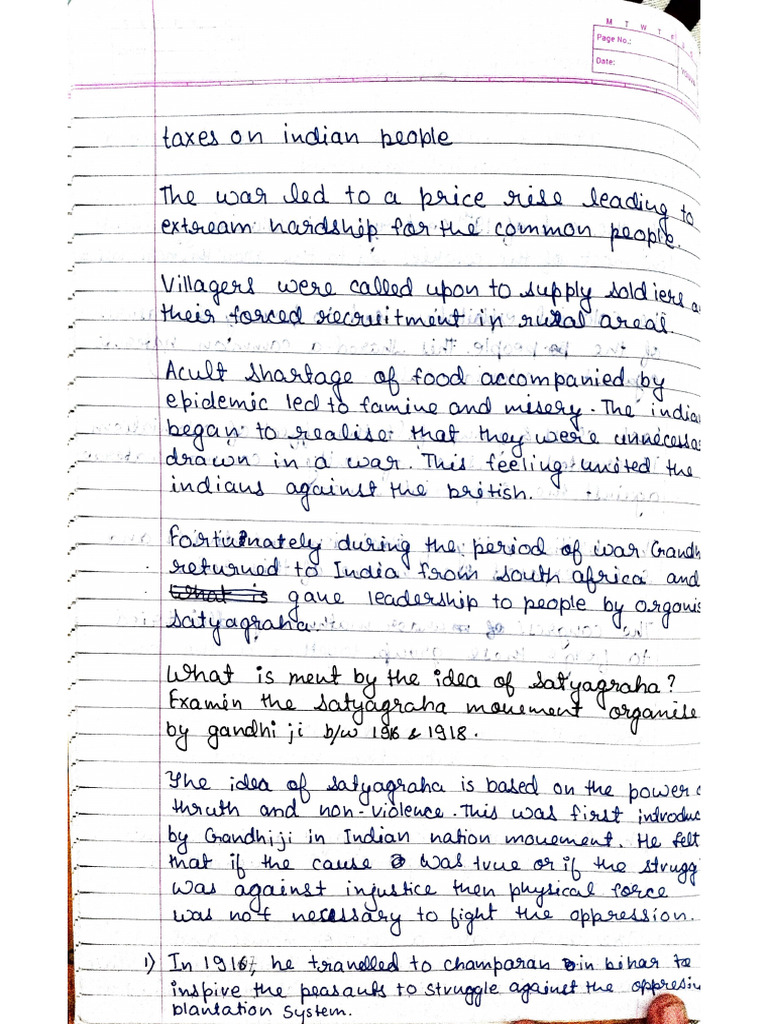 M T W T F S S
Page No.:
Date:
taxes on indian people
The war led to a price rise leading to
extream hardship for the common people.
Villagers were called upon to supply soldiers a
their forced recruitment in rural areal.
Acult shartage of food accompanied by
epidemic led to famine and misery. The india
began to realise that they were unnecessa
drawn in a war. This feeling united the
indians against the british.
Fortunately during the period of war Gandh
returned to India from south africa and
gave leadership to people by orgonis
satyagraha.
What is ment by the idea of satyagraha?
Examin the satyagraha movement organise
by gandhi ji b/w 1916 & 1918.
The idea of satyagraha is based on the power o
thruth and non-violence. This was first introduc
by Gandhiji in Indian nation movement. He felt
that if the cause was true or if the strugg
was against injustice then physical force
was not necessary to fight the oppression.
1) In 1916, he travelled to champaran in bihar to
inspire the peasants to struggle against the oppresiv
plantation system.